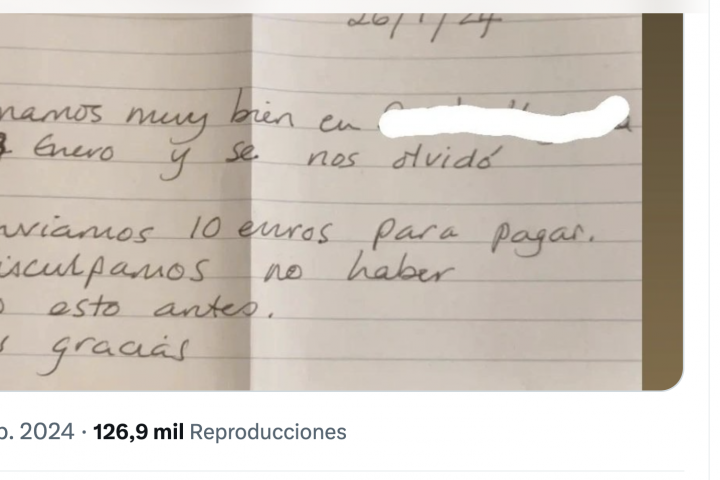 26/1/24
namos muy bien en
Enero y se nos olvidó
uviamos 10 euros para pagar.
isculpamos no haber
o esto antes.
s gracias
b. 2024 · 126,9 mil Reproducciones